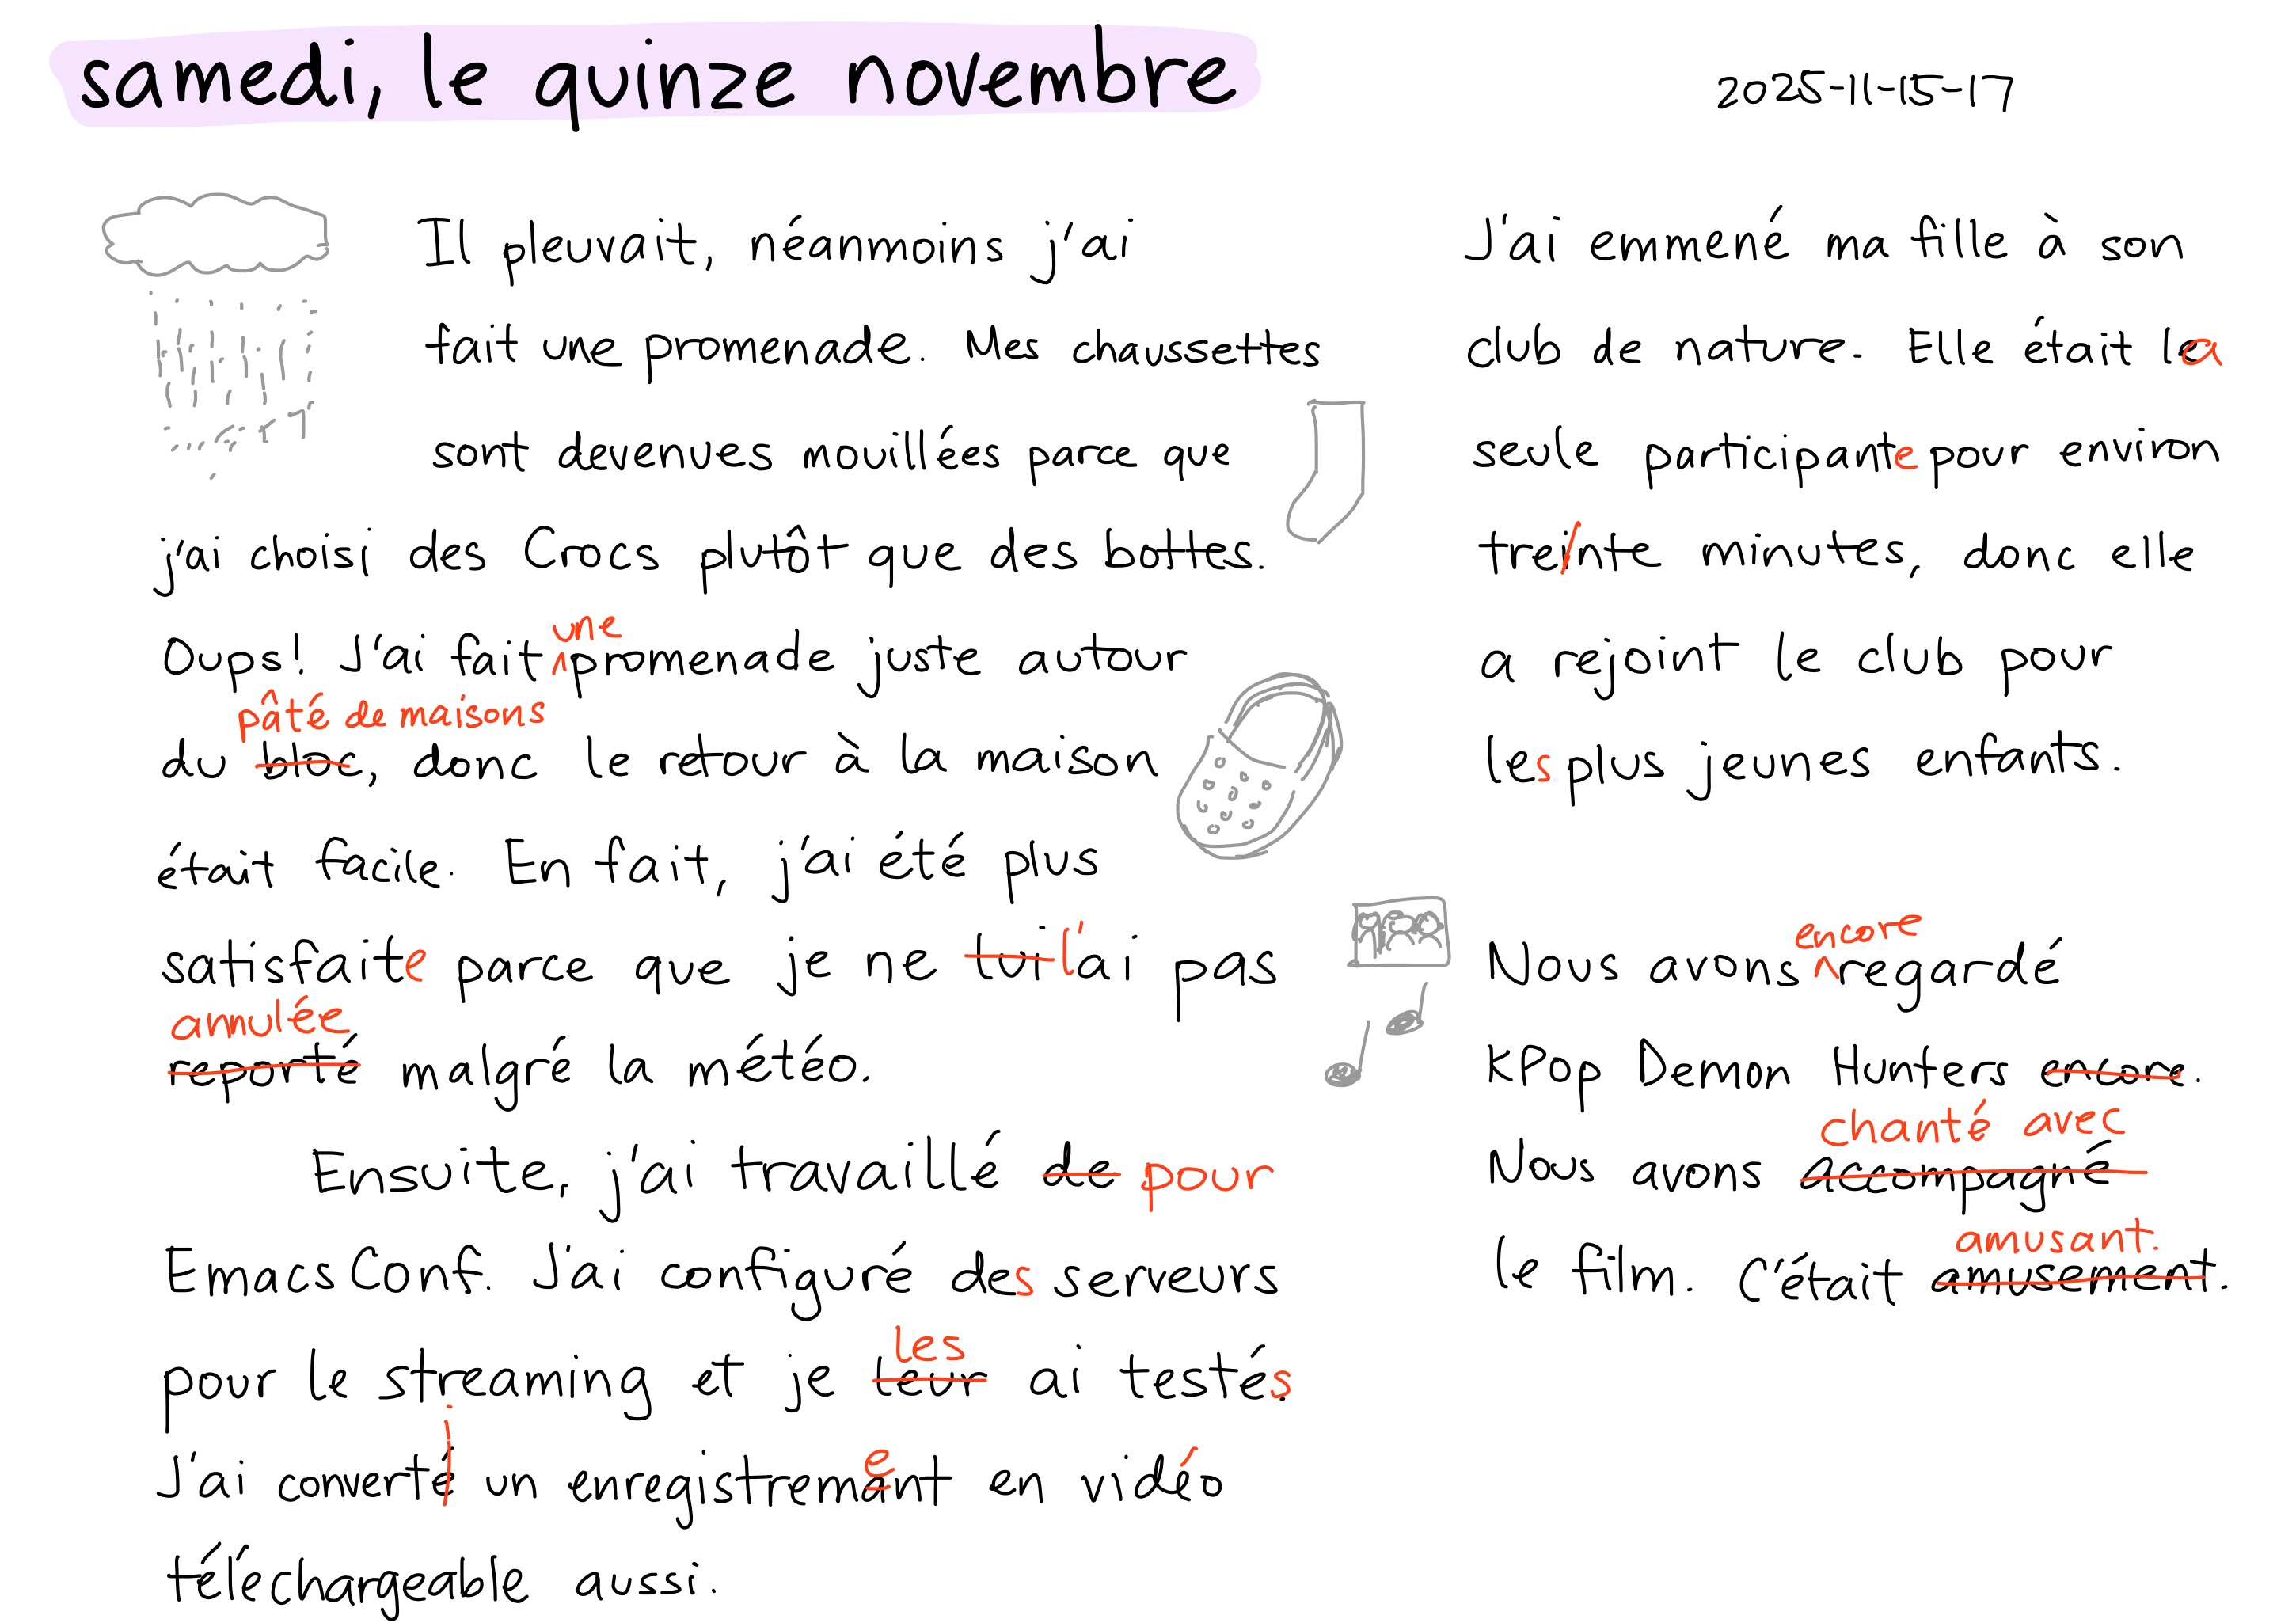 samedi, le quinze novembre
2025-11-15-17
Il pleuvait, néanmoins j'ai
fait une promenade. Mes chaussettes
sont devenues mouillées parce que
j'ai choisi des Crocs plutôt que des bottes.
une
Oups! J'ai fait promenade juste autour
pâté de maisons
du bloc, donc le retour à la maison
était facile. En fait, j'ai été plus
satisfaite parce que je ne lui l'ai pas
annulée
reporté malgré la météo.
Ensuite, j'ai travaillé de pour
EmacsConf. J'ai configuré des serveurs
les
pour le streaming et je leur ai testés.
i
J'ai converté un enregistremant en vidéo
e
téléchargeable aussi.
J'ai emmené ma fille à son
club de nature. Elle était lea
seule participante pour environ
treinte minutes, donc elle
a rejoint le club pour
les plus jeunes enfants.
encore
Nous avons regardé
KPop Demon Hunters encore.
chanté avec
Nous avons accompagné
amusant.
le film. C'était amusement.